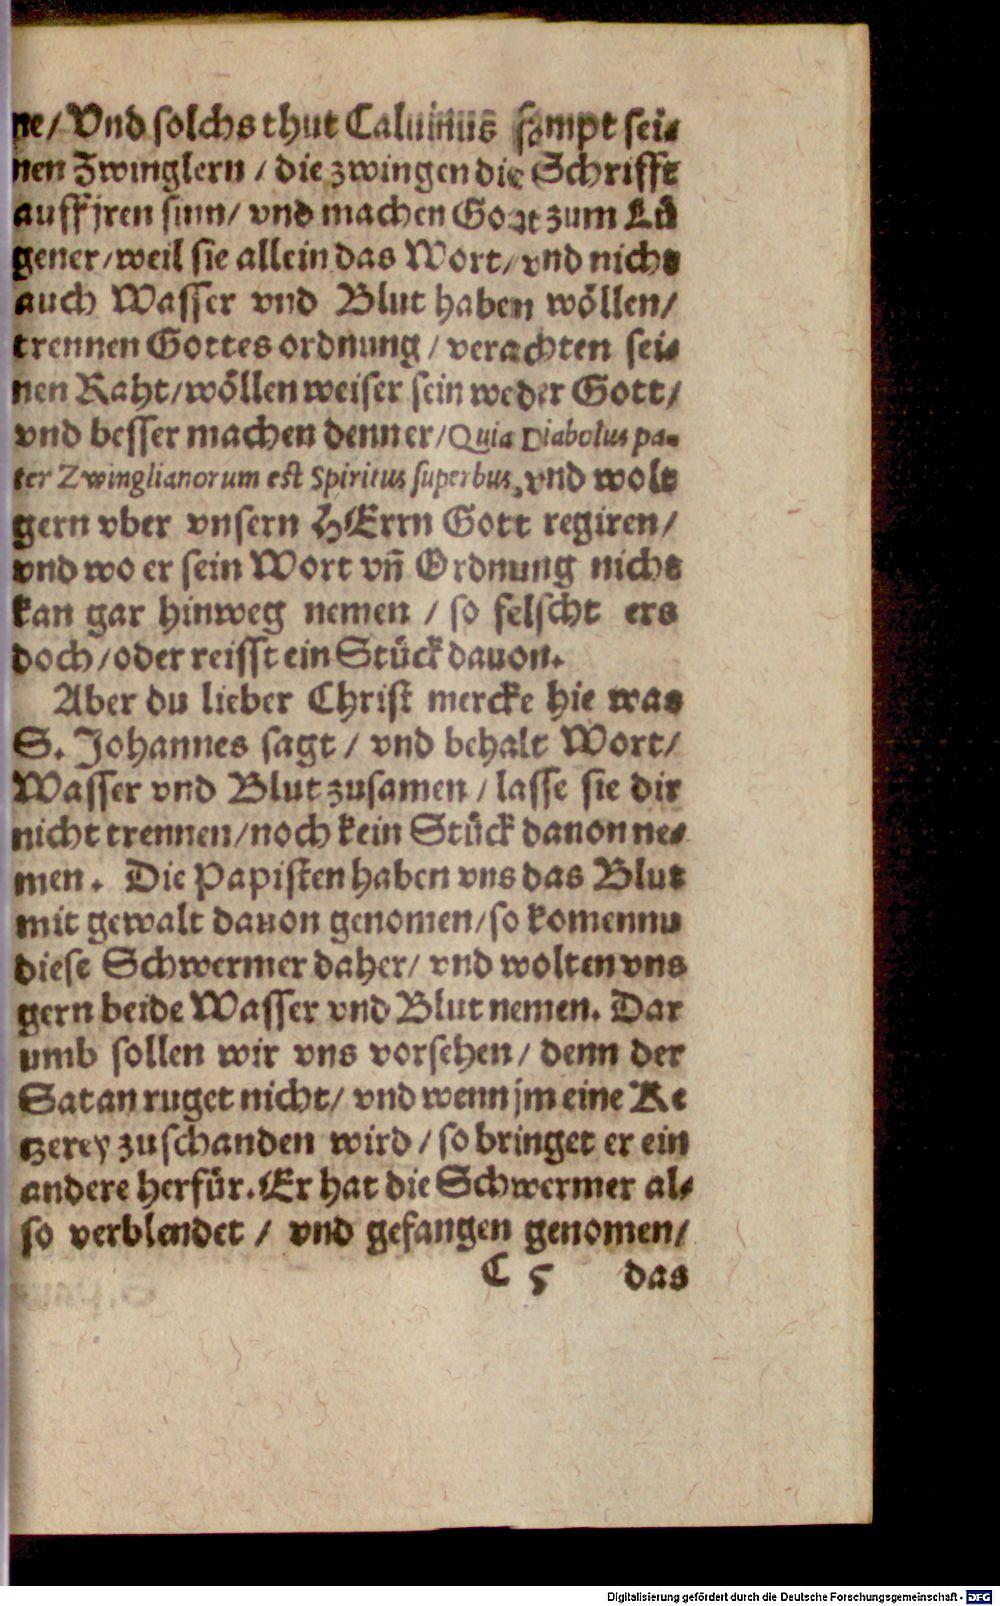 ne/ Vnd solchs thut Caluinus sampt sei⸗
nen Zwinglern / die zwingen die Schrifft
auff jren sinn/ vnd machen Gott zum Lü
gener/weil sie allein das Wort/ vnd nicht
auch Wasser vnd Blut haben wöllen/
trennen Gottes ordnung / verachten sei⸗
nen Raht/wöllen weiser sein weder Gott/
vnd besser machen denn er/Quia Diabolus pa-
ter Zwinglianorum est Spiritus superbus, vnd wolt
gern vber vnsern HErrn Gott regiren/
vnd wo er sein Wort vn̄ Ordnung nicht
kan gar hinweg nemen / so felscht ers
doch/oder reisst ein Stück dauon.
Aber du lieber Christ mercke hie was
S. Johannes sagt / vnd behalt Wort/
Wasser vnd Blut zusamen / lasse sie dir
nicht trennen/noch kein Stück danon ne⸗
men. Die Papisten haben vns das Blut
mit gewalt dauon genomen/so komen nu
diese Schwermer daher/ vnd wolten vns
gern beide Wasser vnd Blut nemen. Dar
umb sollen wir vns vorsehen/ denn der
Satan ruget nicht/ vnd wenn jm eine Ke
tzerey zu schanden wird / so bringet er ein
andere herfür. Er hat die Schwermer al⸗
so verblendet / vnd gefangen genomen/
C 5 das
Digitalisierung gefördert durch die Deutsche Forschungsgemeinschaft - DFG